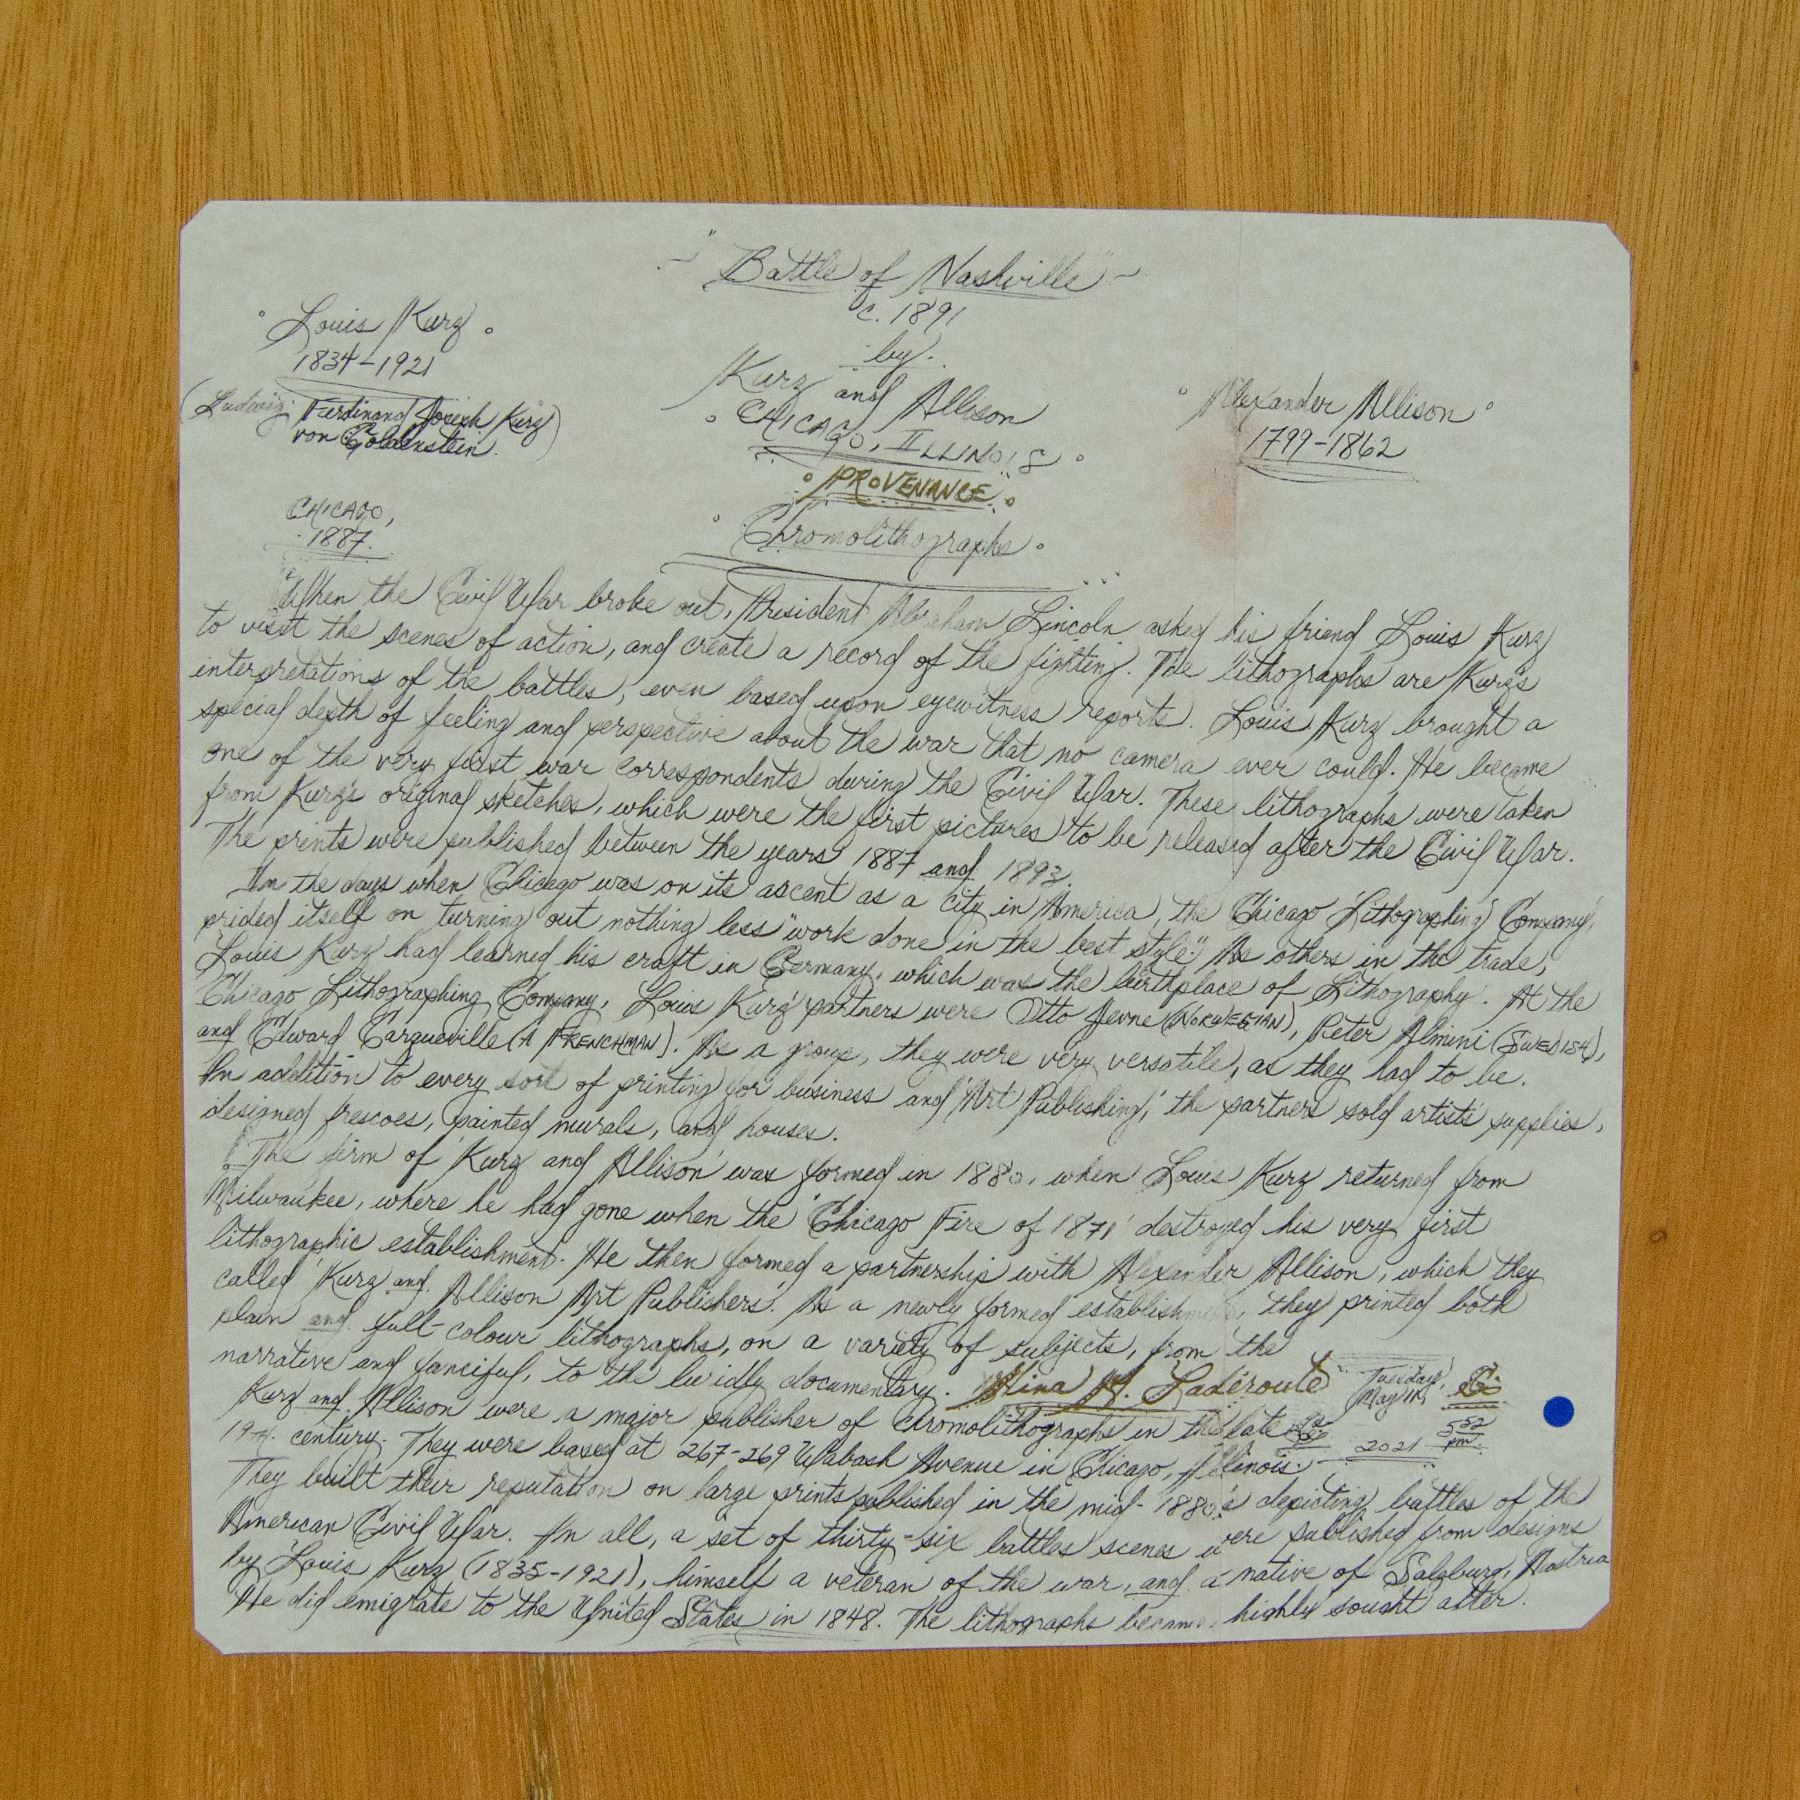 ~ "Battle of Nashville" ~
c. 1891
by
Kurz and Allison
CHICAGO, ILLINOIS
PROVENANCE
Chromolithographs
Louis Kurz
1834-1921
(Ludwig Ferdinand Joseph Kurz
von Goldenstein)
CHICAGO,
1887.
Alexander Allison
1799-1862
When the Civil War broke out, President Abraham Lincoln asked his friend Louis Kurz
to visit the scenes of action, and create a record of the fighting. The lithographs are Kurz's
interpretations of the battles, even based upon eyewitness reports. Louis Kurz brought a
special depth of feeling and perspective about the war that no camera ever could. He became
one of the very first war correspondents during the Civil War. These lithographs were taken
from Kurz's original sketches, which were the first pictures to be released after the Civil War.
The prints were published between the years 1887 and 1893.
In the days when Chicago was on its ascent as a city in America, the 'Chicago Lithographing Company',
prided itself on turning out nothing less "work done in the best style". As others in the trade,
Louis Kurz had learned his craft in Germany, which was the birthplace of Lithography. At the
Chicago Lithographing Company, Louis Kurz' partners were Otto Jevne (NORWEGIAN), Peter Almini (SWEDISH),
and Edward Carqueville (A FRENCHMAN). As a group, they were very versatile, as they had to be.
In addition to every sort of printing for business and 'Art Publishing,' the partners sold artists' supplies,
designed frescoes, painted murals, and houses.
The firm of 'Kurz and Allison' was formed in 1880, when Louis Kurz returned from
Milwaukee, where he had gone when the 'Chicago Fire of 1871' destroyed his very first
lithographic establishment. He then formed a partnership with Alexander Allison, which they
called 'Kurz and Allison Art Publishers'. As a newly formed establishment, they printed both
plain and full-colour lithographs, on a variety of subjects, from the
narrative and fanciful, to the luridly documentary.
Kurz and Allison were a major publisher of chromolithographs in the late
19th. century. They were based at 267-269 Wabash Avenue in Chicago, Illinois.
Tuesday,
May
2021
5:52
pm.
They built their reputation on large prints published in the mid-1880's depicting battles of the
American Civil War. In all, a set of thirty-six battles scenes were published from designs
by Louis Kurz (1835-1921), himself a veteran of the war, and a native of Salzburg, Austria
He did emigrate to the United States in 1848. The lithographs became highly sought after.